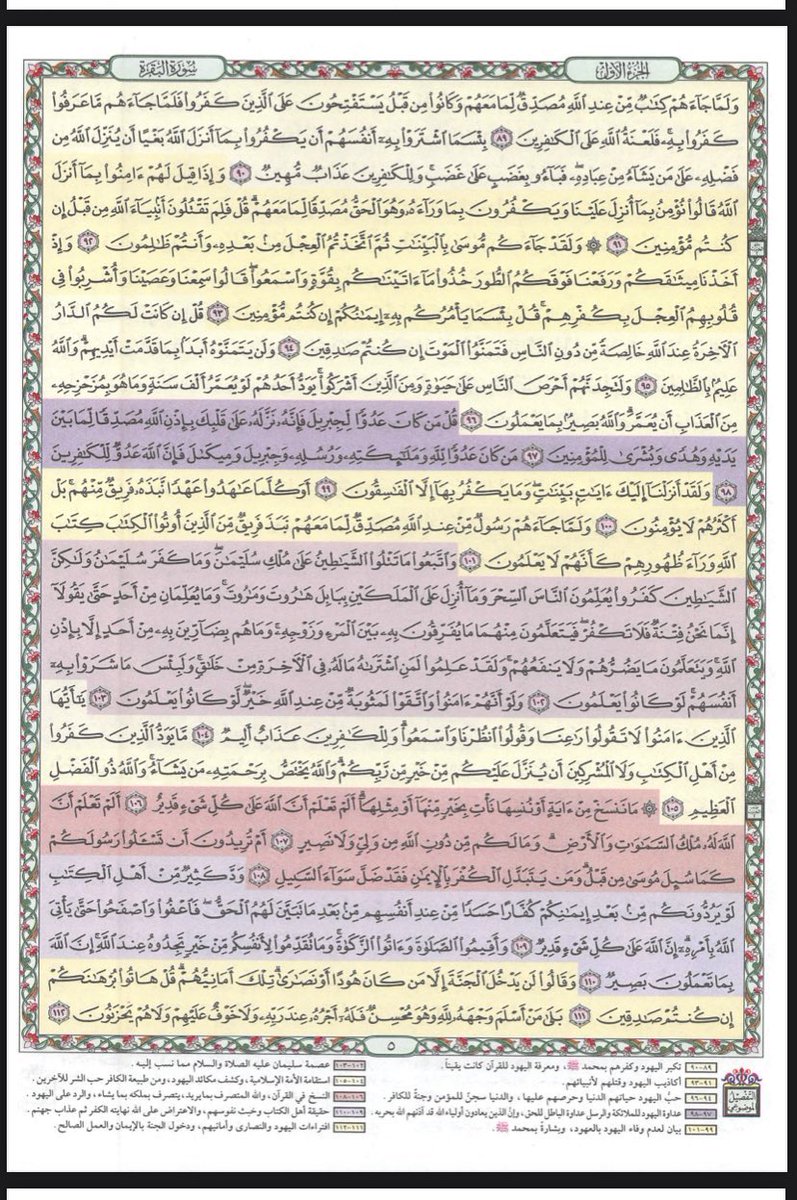 الجزء الأول
سورة البقرة
وَلَمَّا جَآءَهُمْ كِتَٰبٌ مِّنْ عِندِ ٱللَّهِ مُصَدِّقٌ لِّمَا مَعَهُمْ وَكَانُوا۟ مِن قَبْلُ يَسْتَفْتِحُونَ عَلَى ٱلَّذِينَ كَفَرُوا۟ فَلَمَّا جَآءَهُم مَّا عَرَفُوا۟
كَفَرُوا۟ بِهِۦ فَلَعْنَةُ ٱللَّهِ عَلَى ٱلْكَٰفِرِينَ ٨٩ بِئْسَمَا ٱشْتَرَوْا۟ بِهِۦٓ أَنفُسَهُمْ أَن يَكْفُرُوا۟ بِمَآ أَنزَلَ ٱللَّهُ بَغْيًا أَن يُنَزِّلَ ٱللَّهُ مِن
فَضْلِهِۦ عَلَىٰ مَن يَشَآءُ مِنْ عِبَادِهِۦ فَبَآءُو بِغَضَبٍ عَلَىٰ غَضَبٍ وَلِلْكَٰفِرِينَ عَذَابٌ مُّهِينٌ ٩٠ وَإِذَا قِيلَ لَهُمْ ءَامِنُوا۟ بِمَآ أَنزَلَ
ٱللَّهُ قَالُوا۟ نُؤْمِنُ بِمَآ أُنزِلَ عَلَيْنَا وَيَكْفُرُونَ بِمَا وَرَآءَهُۥ وَهُوَ ٱلْحَقُّ مُصَدِّقًا لِّمَا مَعَهُمْ قُلْ فَلِمَ تَقْتُلُونَ أَنۢبِيَآءَ ٱللَّهِ مِن قَبْلُ إِن
كُنتُم مُّؤْمِنِينَ ٩١ ۞ وَلَقَدْ جَآءَكُم مُّوسَىٰ بِٱلْبَيِّنَٰتِ ثُمَّ ٱتَّخَذْتُمُ ٱلْعِجْلَ مِنۢ بَعْدِهِۦ وَأَنتُمْ ظَٰلِمُونَ ٩٢ وَإِذْ
أَخَذْنَا مِيثَٰقَكُمْ وَرَفَعْنَا فَوْقَكُمُ ٱلطُّورَ خُذُوا۟ مَآ ءَاتَيْنَٰكُم بِقُوَّةٍ وَٱسْمَعُوا۟ قَالُوا۟ سَمِعْنَا وَعَصَيْنَا وَأُشْرِبُوا۟ فِى
قُلُوبِهِمُ ٱلْعِجْلَ بِكُفْرِهِمْ قُلْ بِئْسَمَا يَأْمُرُكُم بِهِۦٓ إِيمَٰنُكُمْ إِن كُنتُم مُّؤْمِنِينَ ٩٣ قُلْ إِن كَانَتْ لَكُمُ ٱلدَّارُ
ٱلْءَاخِرَةُ عِندَ ٱللَّهِ خَالِصَةً مِّن دُونِ ٱلنَّاسِ فَتَمَنَّوُا۟ ٱلْمَوْتَ إِن كُنتُمْ صَٰدِقِينَ ٩٤ وَلَن يَتَمَنَّوْهُ أَبَدًۢا بِمَا قَدَّمَتْ أَيْدِيهِمْ وَٱللَّهُ
عَلِيمٌۢ بِٱلظَّٰلِمِينَ ٩٥ وَلَتَجِدَنَّهُمْ أَحْرَصَ ٱلنَّاسِ عَلَىٰ حَيَوٰةٍ وَمِنَ ٱلَّذِينَ أَشْرَكُوا۟ يَوَدُّ أَحَدُهُمْ لَوْ يُعَمَّرُ أَلْفَ سَنَةٍ وَمَا هُوَ بِمُزَحْزِحِهِۦ
مِنَ ٱلْعَذَابِ أَن يُعَمَّرَ وَٱللَّهُ بَصِيرٌۢ بِمَا يَعْمَلُونَ ٩٦ قُلْ مَن كَانَ عَدُوًّا لِّجِبْرِيلَ فَإِنَّهُۥ نَزَّلَهُۥ عَلَىٰ قَلْبِكَ بِإِذْنِ ٱللَّهِ مُصَدِّقًا لِّمَا بَيْنَ
يَدَيْهِ وَهُدًى وَبُشْرَىٰ لِلْمُؤْمِنِينَ ٩٧ مَن كَانَ عَدُوًّا لِّلَّهِ وَمَلَٰٓئِكَتِهِۦ وَرُسُلِهِۦ وَجِبْرِيلَ وَمِيكَىٰلَ فَإِنَّ ٱللَّهَ عَدُوٌّ لِّلْكَٰفِرِينَ
٩٨ وَلَقَدْ أَنزَلْنَآ إِلَيْكَ ءَايَٰتٍۭ بَيِّنَٰتٍ وَمَا يَكْفُرُ بِهَآ إِلَّا ٱلْفَٰسِقُونَ ٩٩ أَوَكُلَّمَا عَٰهَدُوا۟ عَهْدًا نَّبَذَهُۥ فَرِيقٌ مِّنْهُم بَلْ
أَكْثَرُهُمْ لَا يُؤْمِنُونَ ١٠٠ وَلَمَّا جَآءَهُمْ رَسُولٌ مِّنْ عِندِ ٱللَّهِ مُصَدِّقٌ لِّمَا مَعَهُمْ نَبَذَ فَرِيقٌ مِّنَ ٱلَّذِينَ أُوتُوا۟ ٱلْكِتَٰبَ كِتَٰبَ
ٱللَّهِ وَرَآءَ ظُهُورِهِمْ كَأَنَّهُمْ لَا يَعْلَمُونَ ١٠١ وَٱتَّبَعُوا۟ مَا تَتْلُوا۟ ٱلشَّيَٰطِينُ عَلَىٰ مُلْكِ سُلَيْمَٰنَ وَمَا كَفَرَ سُلَيْمَٰنُ وَلَٰكِنَّ
ٱلشَّيَٰطِينَ كَفَرُوا۟ يُعَلِّمُونَ ٱلنَّاسَ ٱلسِّحْرَ وَمَآ أُنزِلَ عَلَى ٱلْمَلَكَيْنِ بِبَابِلَ هَٰرُوتَ وَمَٰرُوتَ وَمَا يُعَلِّمَانِ مِنْ أَحَدٍ حَتَّىٰ يَقُولَآ
إِنَّمَا نَحْنُ فِتْنَةٌ فَلَا تَكْفُرْ فَيَتَعَلَّمُونَ مِنْهُمَا مَا يُفَرِّقُونَ بِهِۦ بَيْنَ ٱلْمَرْءِ وَزَوْجِهِۦ وَمَا هُم بِضَآرِّينَ بِهِۦ مِنْ أَحَدٍ إِلَّا بِإِذْنِ
ٱللَّهِ وَيَتَعَلَّمُونَ مَا يَضُرُّهُمْ وَلَا يَنفَعُهُمْ وَلَقَدْ عَلِمُوا۟ لَمَنِ ٱشْتَرَىٰهُ مَا لَهُۥ فِى ٱلْءَاخِرَةِ مِنْ خَلَٰقٍ وَلَبِئْسَ مَا شَرَوْا۟ بِهِۦٓ
أَنفُسَهُمْ لَوْ كَانُوا۟ يَعْلَمُونَ ١٠٢ وَلَوْ أَنَّهُمْ ءَامَنُوا۟ وَٱتَّقَوْا۟ لَمَثُوبَةٌ مِّنْ عِندِ ٱللَّهِ خَيْرٌ لَّوْ كَانُوا۟ يَعْلَمُونَ ١٠٣ يَٰٓأَيُّهَا
ٱلَّذِينَ ءَامَنُوا۟ لَا تَقُولُوا۟ رَٰعِنَا وَقُولُوا۟ ٱنظُرْنَا وَٱسْمَعُوا۟ وَلِلْكَٰفِرِينَ عَذَابٌ أَلِيمٌ ١٠٤ مَّا يَوَدُّ ٱلَّذِينَ كَفَرُوا۟
مِنْ أَهْلِ ٱلْكِتَٰبِ وَلَا ٱلْمُشْرِكِينَ أَن يُنَزَّلَ عَلَيْكُم مِّنْ خَيْرٍ مِّن رَّبِّكُمْ وَٱللَّهُ يَخْتَصُّ بِرَحْمَتِهِۦ مَن يَشَآءُ وَٱللَّهُ ذُو ٱلْفَضْلِ
ٱلْعَظِيمِ ١٠٥ ۞ مَا نَنسَخْ مِنْ ءَايَةٍ أَوْ نُنسِهَا نَأْتِ بِخَيْرٍ مِّنْهَآ أَوْ مِثْلِهَآ أَلَمْ تَعْلَمْ أَنَّ ٱللَّهَ عَلَىٰ كُلِّ شَىْءٍ قَدِيرٌ ١٠٦ أَلَمْ تَعْلَمْ أَنَّ
ٱللَّهَ لَهُۥ مُلْكُ ٱلسَّمَٰوَٰتِ وَٱلْأَرْضِ وَمَا لَكُم مِّن دُونِ ٱللَّهِ مِن وَلِىٍّ وَلَا نَصِيرٍ ١٠٧ أَمْ تُرِيدُونَ أَن تَسْـَٔلُوا۟ رَسُولَكُمْ
كَمَا سُئِلَ مُوسَىٰ مِن قَبْلُ وَمَن يَتَبَدَّلِ ٱلْكُفْرَ بِٱلْإِيمَٰنِ فَقَدْ ضَلَّ سَوَآءَ ٱلسَّبِيلِ ١٠٨ وَدَّ كَثِيرٌ مِّنْ أَهْلِ ٱلْكِتَٰبِ
لَوْ يَرُدُّونَكُم مِّنۢ بَعْدِ إِيمَٰنِكُمْ كُفَّارًا حَسَدًا مِّنْ عِندِ أَنفُسِهِم مِّنۢ بَعْدِ مَا تَبَيَّنَ لَهُمُ ٱلْحَقُّ فَٱعْفُوا۟ وَٱصْفَحُوا۟ حَتَّىٰ يَأْتِىَ
ٱللَّهُ بِأَمْرِهِۦٓ إِنَّ ٱللَّهَ عَلَىٰ كُلِّ شَىْءٍ قَدِيرٌ ١٠٩ وَأَقِيمُوا۟ ٱلصَّلَوٰةَ وَءَاتُوا۟ ٱلزَّكَوٰةَ وَمَا تُقَدِّمُوا۟ لِأَنفُسِكُم مِّنْ خَيْرٍ تَجِدُوهُ عِندَ ٱللَّهِ إِنَّ ٱللَّهَ
بِمَا تَعْمَلُونَ بَصِيرٌ ١١٠ وَقَالُوا۟ لَن يَدْخُلَ ٱلْجَنَّةَ إِلَّا مَن كَانَ هُودًا أَوْ نَصَٰرَىٰ تِلْكَ أَمَانِيُّهُمْ قُلْ هَاتُوا۟ بُرْهَٰنَكُمْ
إِن كُنتُمْ صَٰدِقِينَ ١١١ بَلَىٰ مَنْ أَسْلَمَ وَجْهَهُۥ لِلَّهِ وَهُوَ مُحْسِنٌ فَلَهُۥٓ أَجْرُهُۥ عِندَ رَبِّهِۦ وَلَا خَوْفٌ عَلَيْهِمْ وَلَا هُمْ يَحْزَنُونَ ١١٢
٥
التفصيل الموضوعي
٨٩-٩٠ تكبر اليهود وكفرهم بمحمد ﷺ، ومعرفة اليهود للقرآن كانت يقيناً.
٩١-٩٣ أكاذيب اليهود وقتلهم لأنبيائهم.
٩٤-٩٦ حبُّ اليهود حياتهم الدنيا وحرصهم عليها، والدنيا سجنٌ للمؤمن وجنةٌ للكافر.
٩٧-٩٨ عداوة اليهود للملائكة والرسل عداوة الباطل للحق، وإنَّ الذين يعادون أولياء الله قد آذنهم الله بحربه.
٩٩-١٠١ بيان لعدم وفاء اليهود بالعهود، وبشارةٌ بمحمد ﷺ.
١٠٢-١٠٣ عصمة سليمان عليه الصلاة والسلام مما نسب إليه.
١٠٤-١٠٥ استقامة الأمة الإسلامية، وكشف مكائد اليهود، ومن طبيعة الكافر حب الشر للآخرين.
١٠٦-١٠٨ النسخ في القرآن، والله المتصرف بمايريد، يتصرف بملكه بما يشاء، والرد على اليهود.
١٠٩-١١٠ حقيقة أهل الكتاب وخبث نفوسهم، والاعتراض على الله نهايته الكفر ثم عذاب جهنم.
١١١-١١٢ افتراءات اليهود والنصارى وأمانيهم، ودخول الجنة بالإيمان والعمل الصالح.